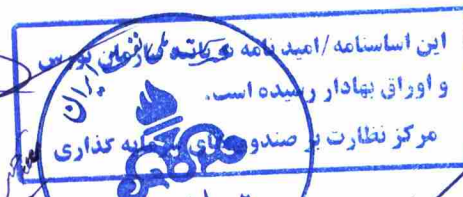 این اساسنامه / امیدنامه به تائید سازمان بورس
و اوراق بهادار رسیده است.
مرکز نظارت بر صندوق‌های سرمایه گذاری
ایران